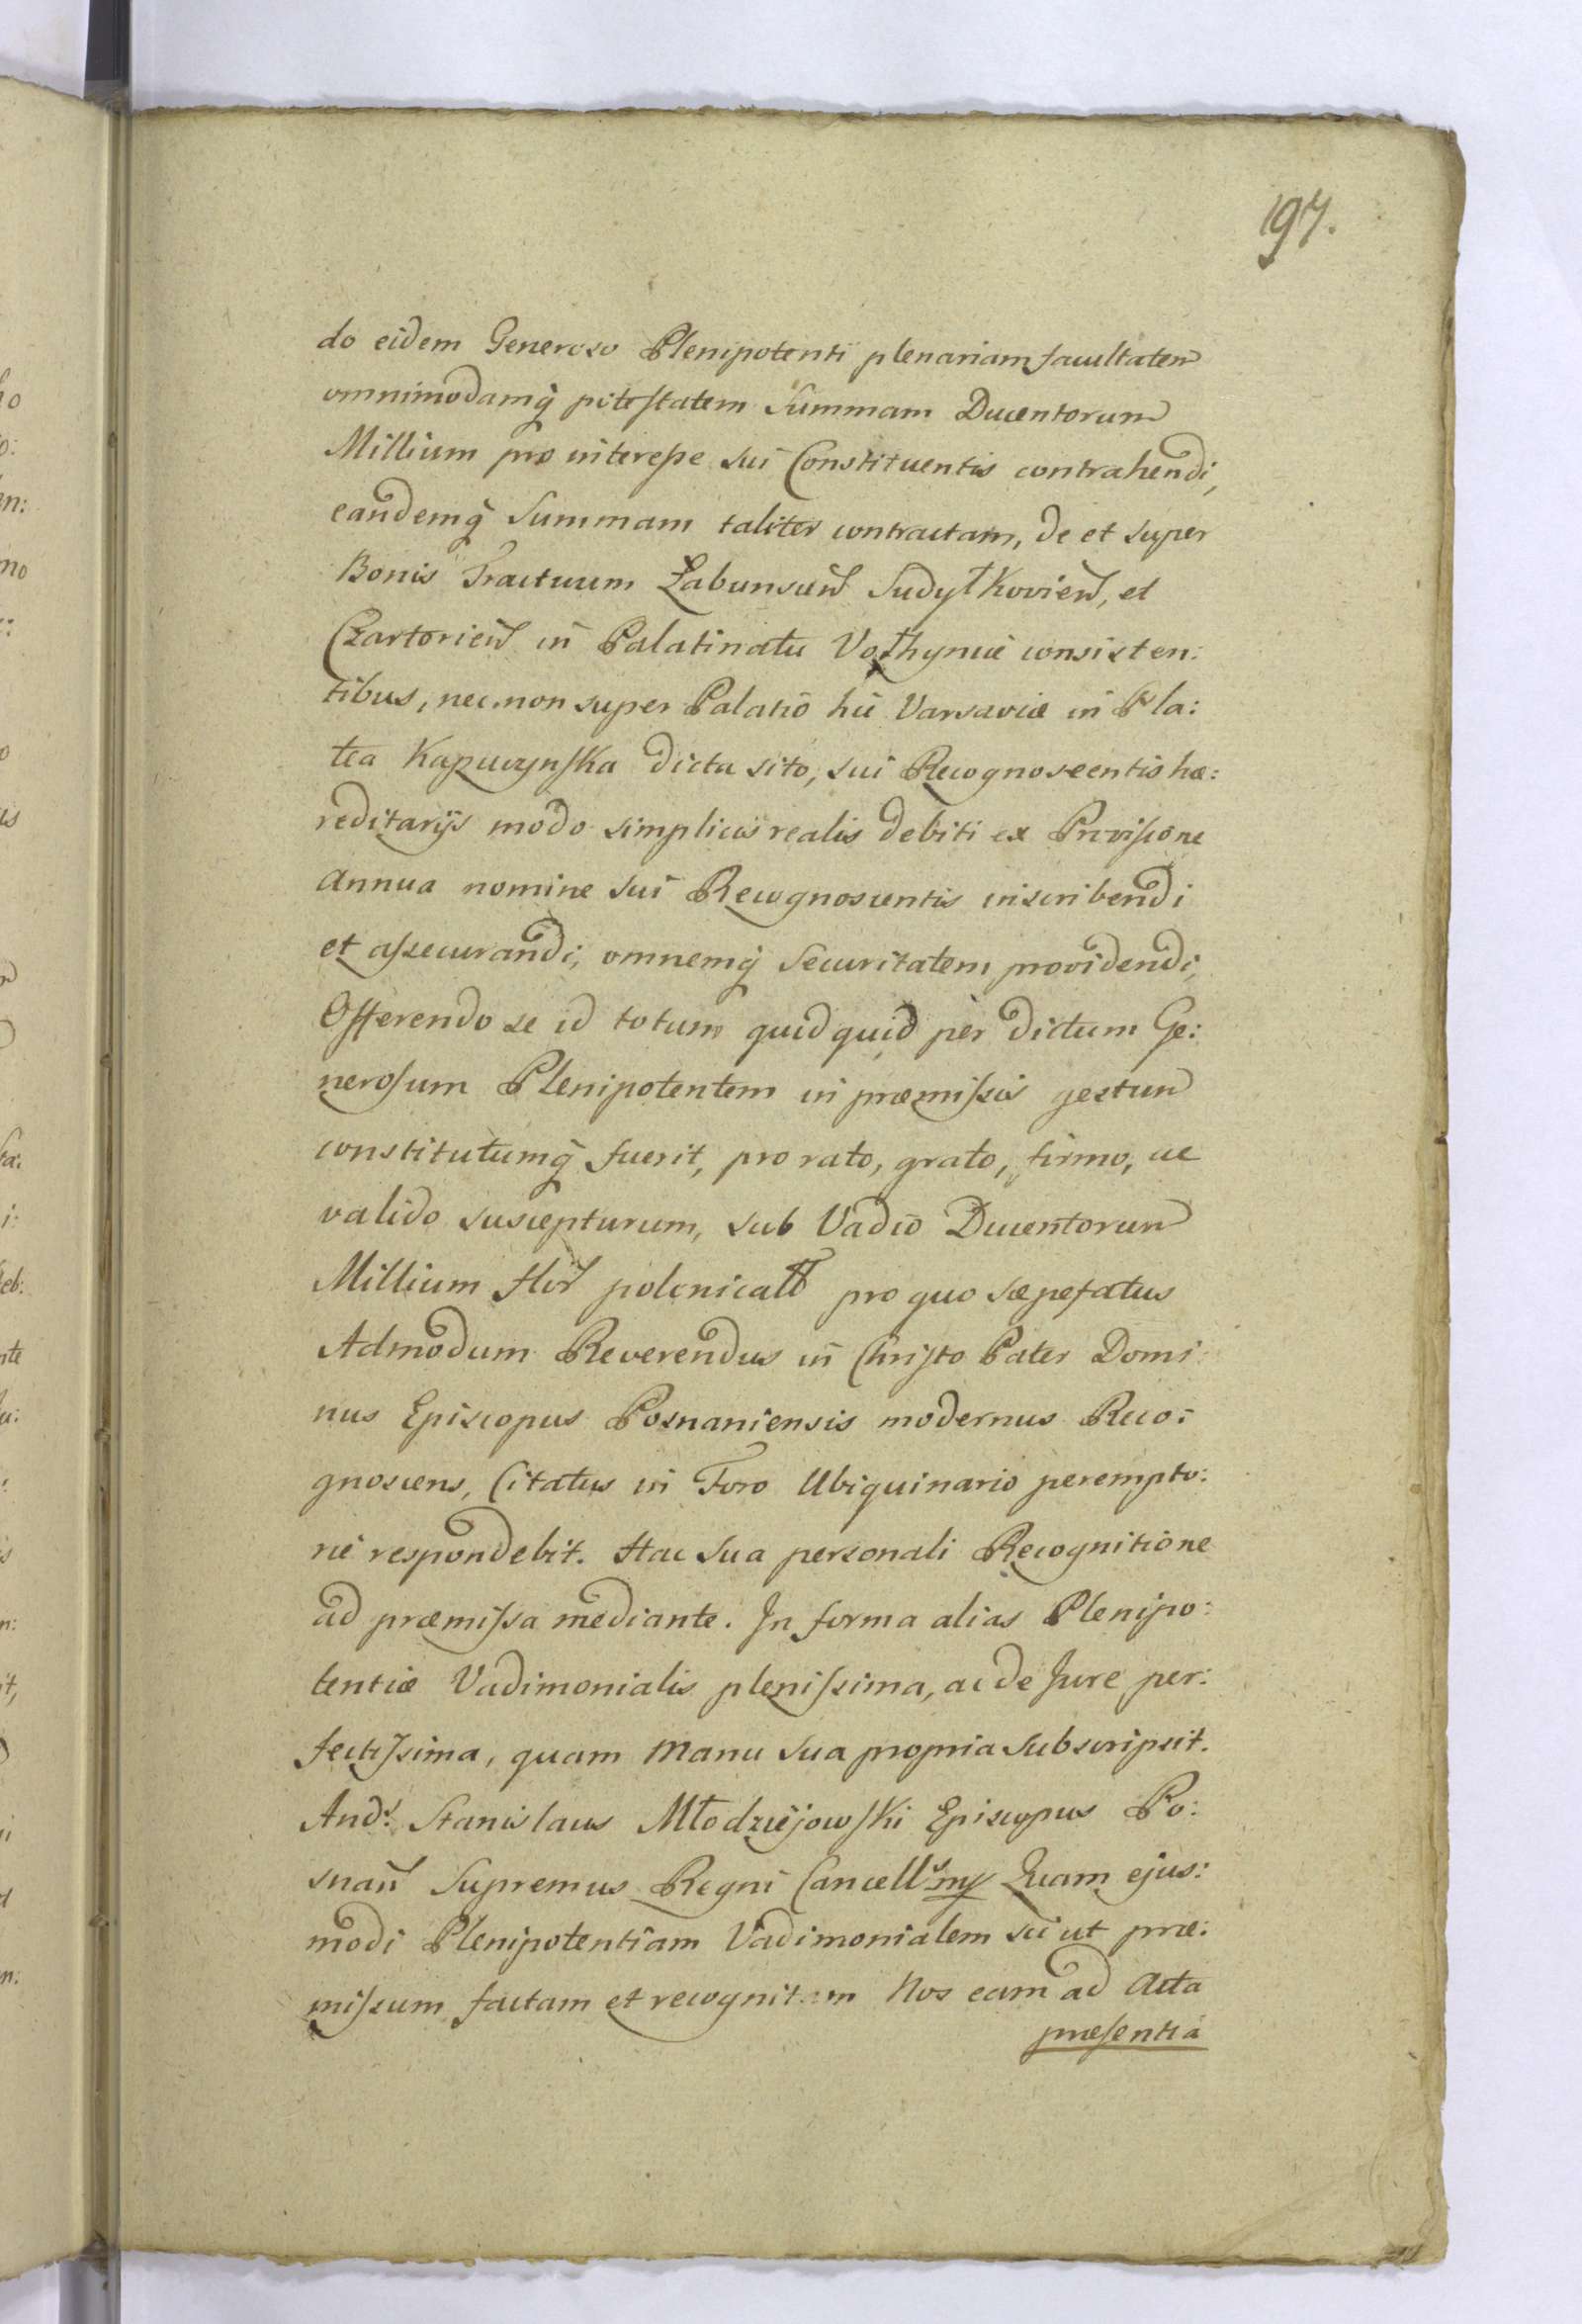 197.
do eidem Generoso Plenipotenti plenariam facultatem
omnimodamq̃ potestatem Summam Ducentorum
Millium pro interesse sui Constituentis contrahendi,
eandemq̃ Summam taliter contractam, de et super
Bonis Tractuum Łabunsceñ Sudyłkovieñ, et
Czartorieñ in Palatinatu Vołhyniæ consisten:
tibus, nec non super Palatio hic Varsaviæ in Pla:
tea Kapucynska dicta sito, sui Recognoscentis hæ:
reditarijs modo simplicis realis debiti ex Provisione
annua nomine sui Recognoscentis inscribendi
et assecurandi, omnemq̃ Securitatem providendi,
Offerendo se id totum quidquid per dictum Ge:
nerosum Plenipotentem in præmissis gestum
constitutumq̃ fuerit, pro rato, grato, firmo, ac
valido suscepturum, sub Vadio Ducentorum
Millium flor polonicall pro quo sæpefatus
Admodum Reverendus in Christo Pater Domi
nus Episcopus Posnaniensis modernus Reco:
gnoscens, Citatus in Foro Ubiquinario perempto:
rie respondebit. Hac sua personali Recognitione
ad præmissa mediante. In forma alias Plenipo:
tentiæ Vadimonialis plenissima, ac de Jure per:
fectissima, quam manu sua propria subscripsit.
Andˢ. Stanislaus Młodziejowski Episcopus Po:
snañ Supremus Regni Cancellˢ mp Quam ejus:
modi Plenipotentiam Vadimonialem sic ut præ:
missum factam et recognitam Nos eam ad Acta
præsentia